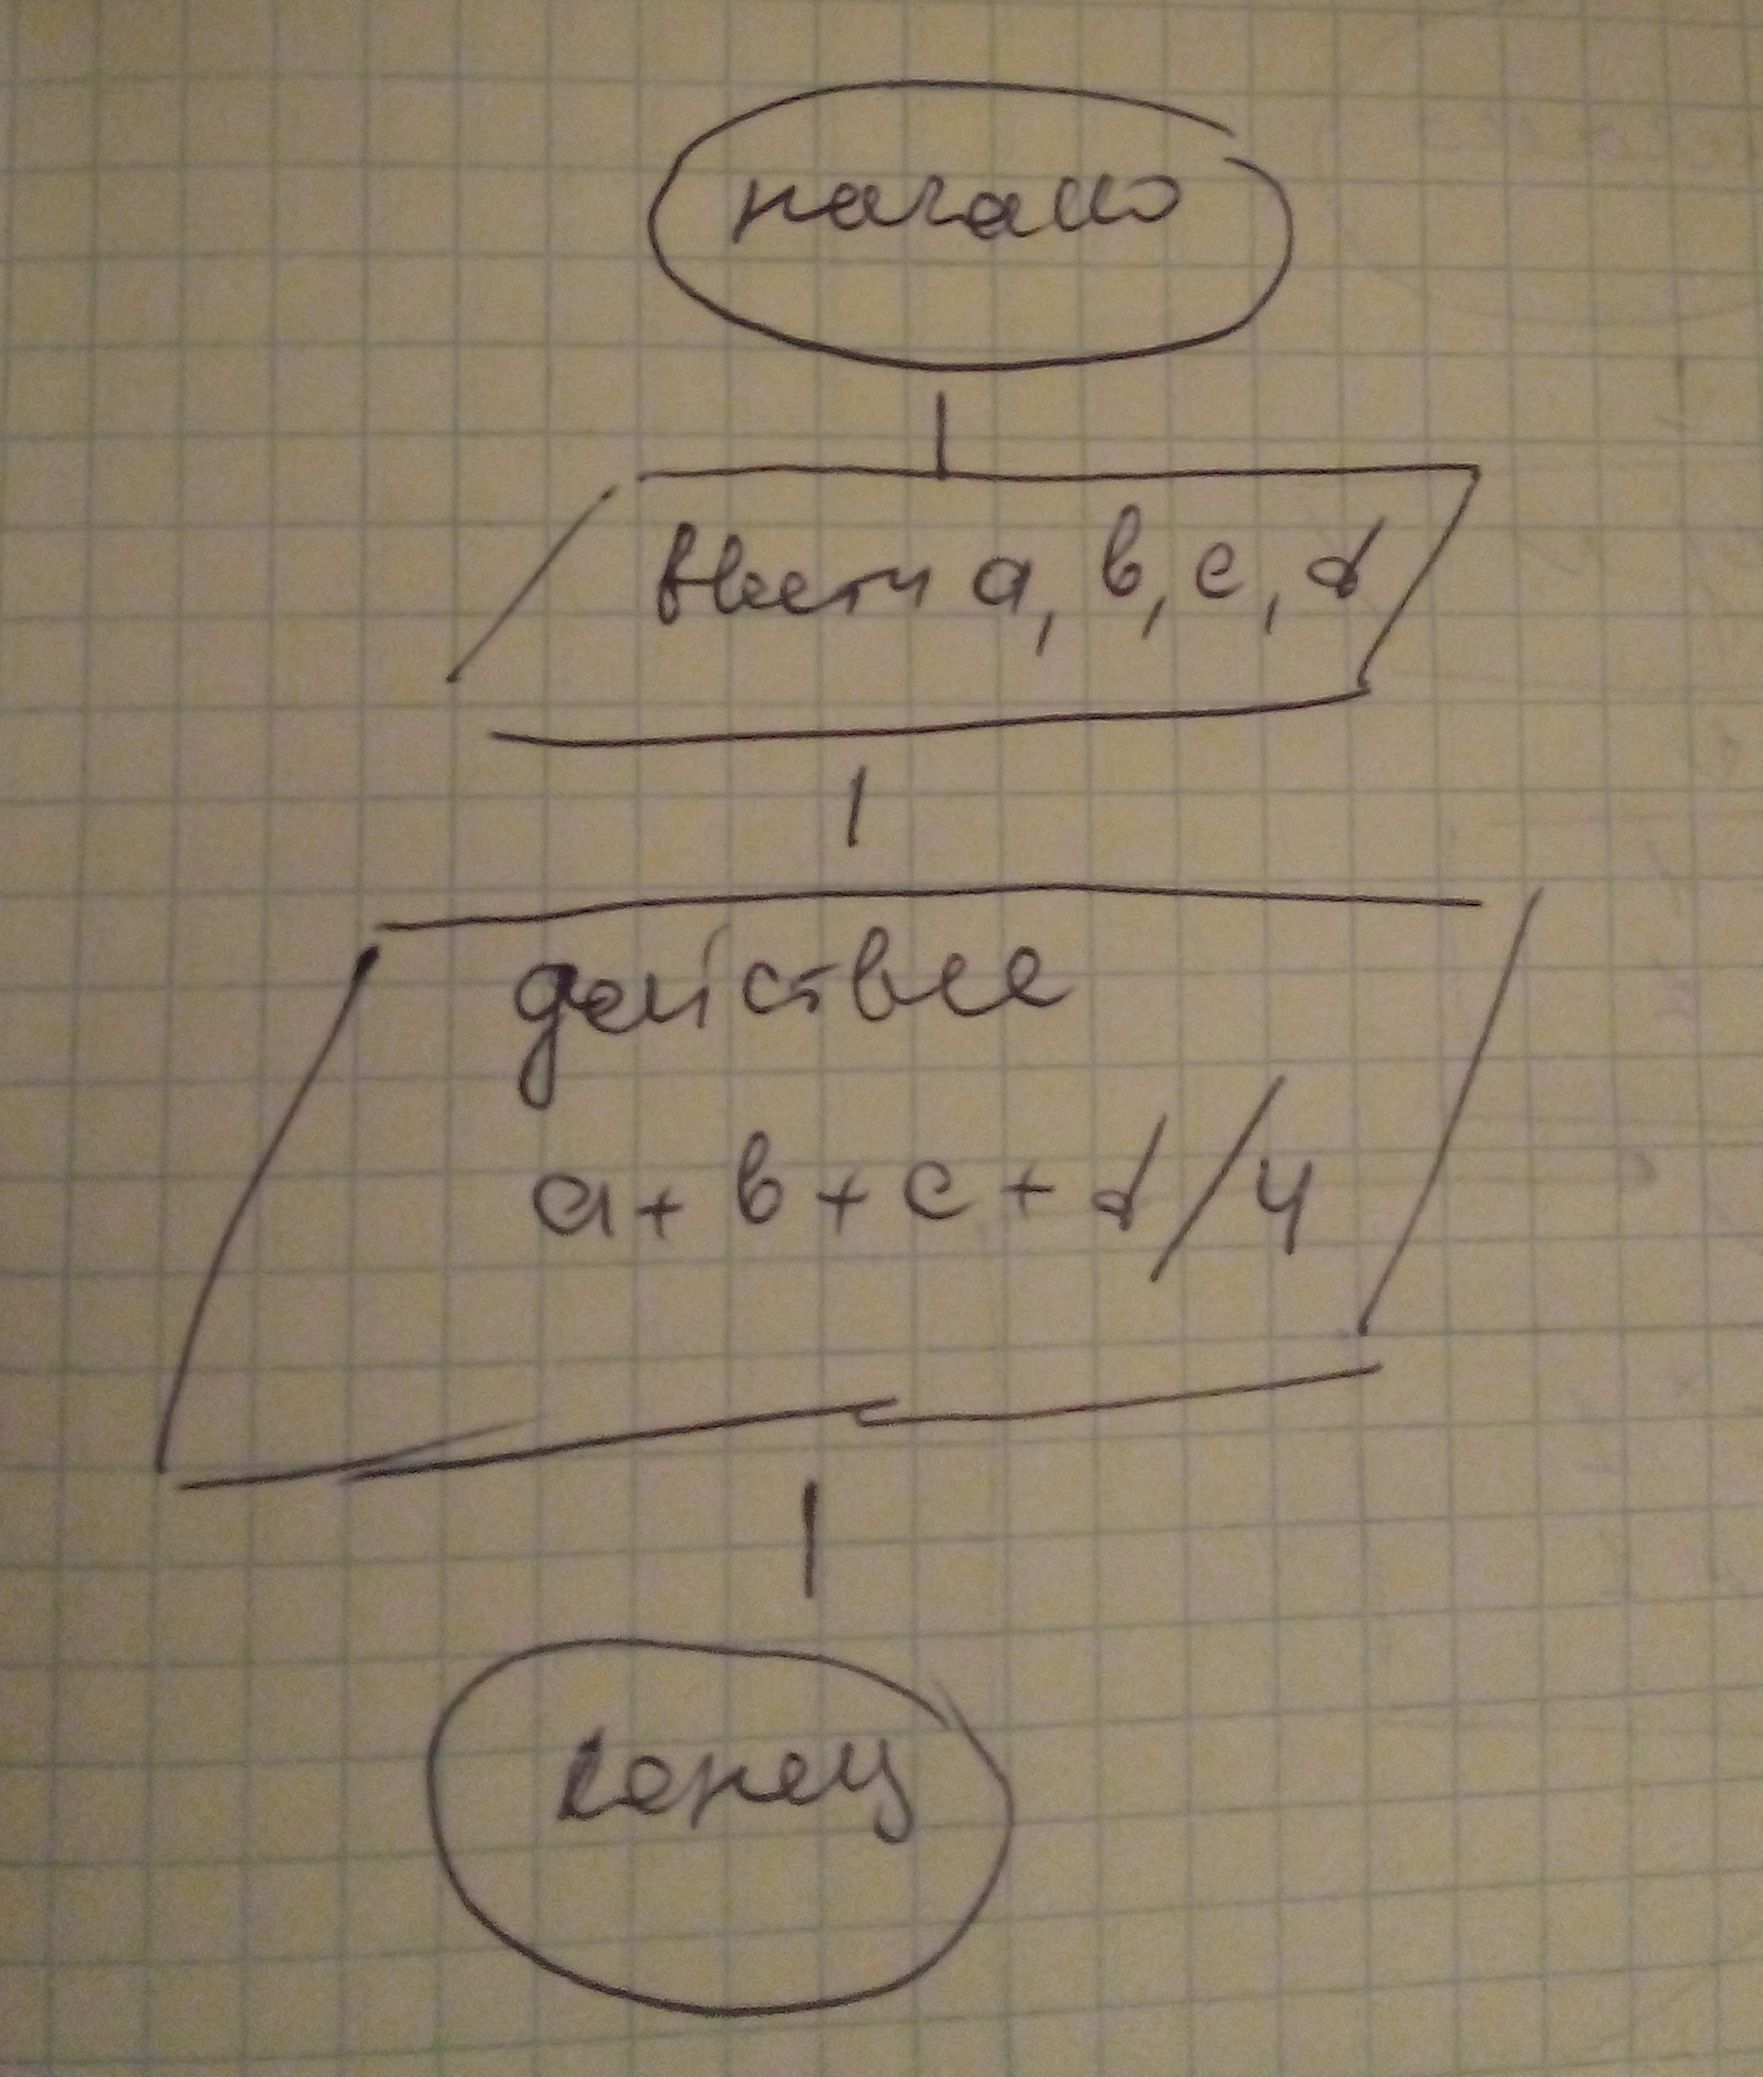 начало
Ввести а, в, с, d
действие
а + в + с + d / 4
конец